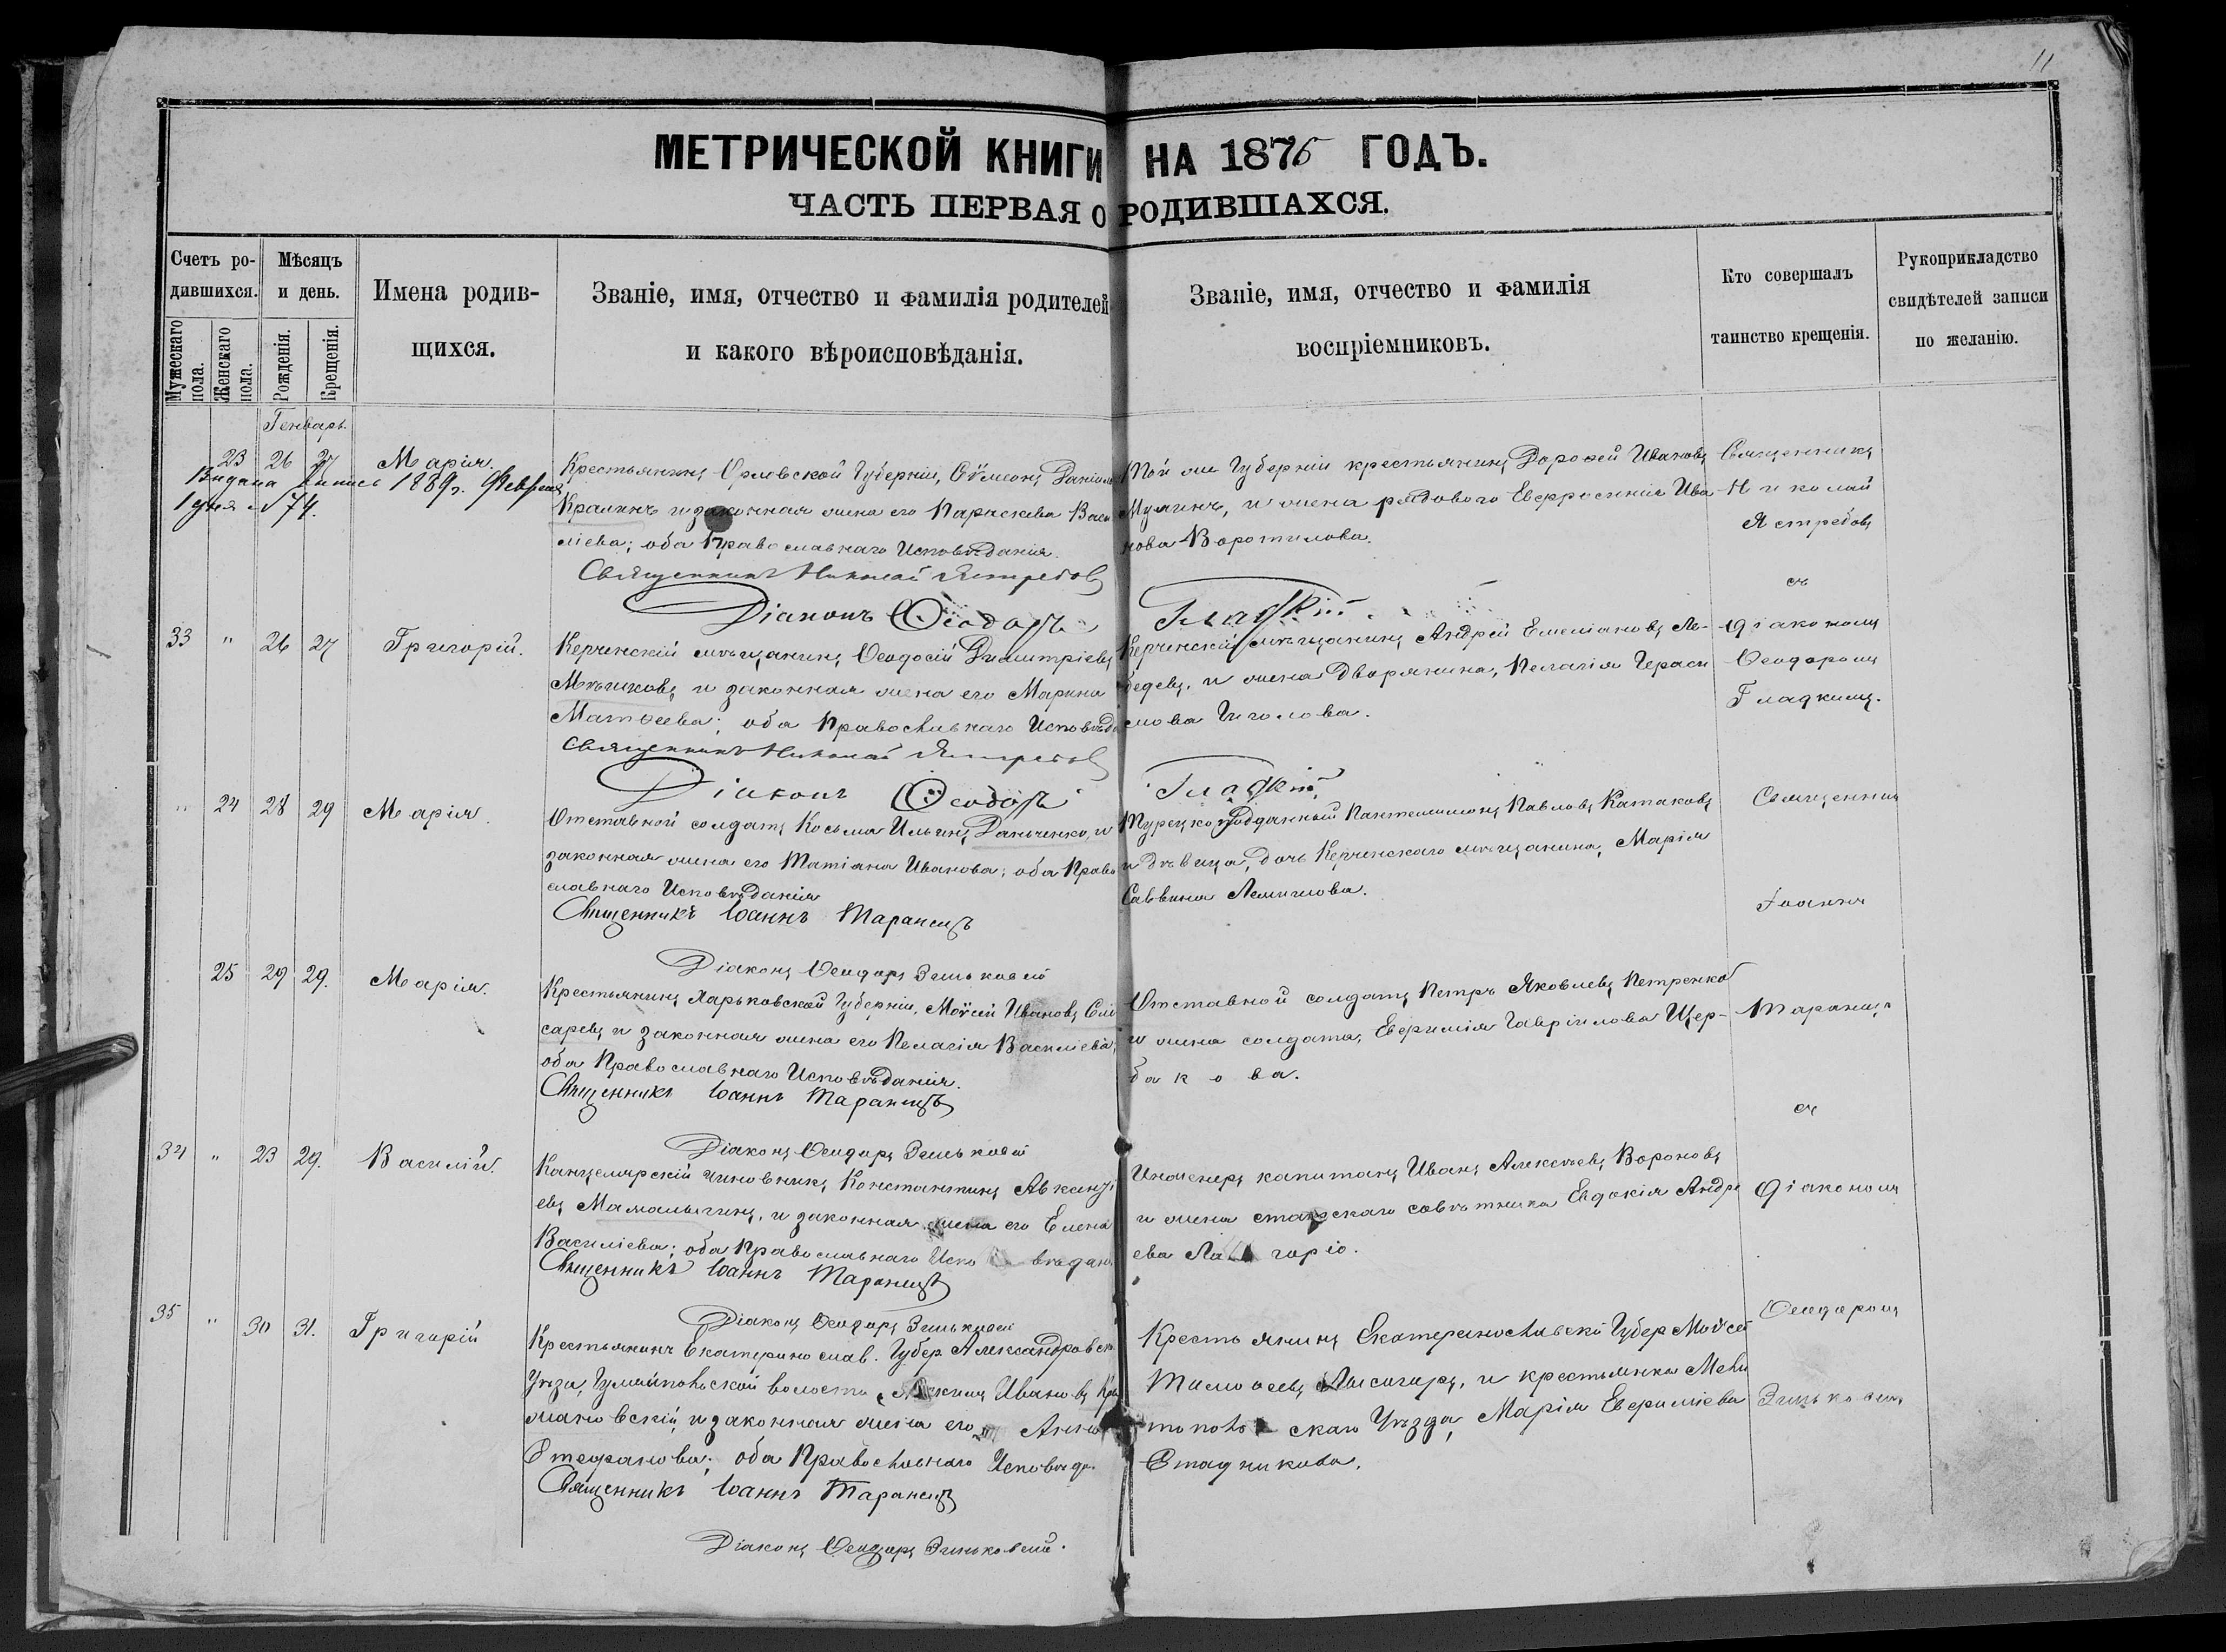 11
МЕТРИЧЕСКОЙ КНИГИ НА 1876 ГОДЪ.
ЧАСТЬ ПЕРВАЯ О РОДИВШАХСЯ.
Счетъ ро-
дившихся.
Мужескаго пола.
Женскаго пола.
Мѣсяцъ
и день.
Рожденія.
Крещенія.
Имена родив-
щихся.
Званіе, имя, отчество и фамилія родителей
и какого вѣроисповѣданія.
Званіе, имя, отчество и фамилія
воспріемниковъ.
Кто совершалъ
таинство крещенія.
Рукоприкладство
свидѣтелей записи
по желанію.
Генварь.
23 26 27 Марія.
Видана Выпись 1889 г. Февраля
1 дня № 74.
Крестьянинъ Орловской Губерніи, Сѵмеонъ Даніилъ
Кралинъ и законная жена его Параскева Васи
ліева; оба Православнаго Исповѣданія.
Священникъ Николай Ястребовъ
Діаконъ Ѳеодоръ Гладкій.
Той же Губерніи крестьянинъ Дороѳей Ивановъ
Мулинъ, и жена рядового Евфросинія Ива
нова Воротилова.
Священникъ
Николай
Ястребовъ
съ
діакономъ
Ѳеодоромъ
Гладкимъ.
33 " 26 27 Григорій.
Керченскій мѣщанинъ Ѳеодосій Димитріевъ
Мѣшковъ и законная жена его Марина
Матѳеева; оба Православнаго Исповѣда
Священникъ Николай Ястребовъ
Діаконъ Ѳеодоръ Гладкій
Керченскій мѣщанинъ Андрей Емеліановъ Ле-
бедевъ, и жена Дворянина, Пелагія Гераси
мова Гиголова.
" 24 28 29 Марія.
Отставной солдатъ Косьма Ильинъ Данченко, и
законная жена его Татіана Иванова; оба Право
славнаго Исповѣданія
Священникъ Іоаннъ Таранецъ
Діаконъ Ѳеодоръ Зеньковскій
Турецкоподданный Пантелимонъ Павловъ Катаковъ
и дѣвица, дочь Керченскаго мѣщанина, Марія
Саввина Лемешова.
Священникъ
Іоаннъ
25 29 29. Марія.
Крестьянинъ Харьковской Губерніи, Моѵсей Ивановъ Сли
саревъ и законная жена его Пелагія Василіева;
оба Православнаго Исповѣданія.
Священникъ Іоаннъ Таранецъ
Діаконъ Ѳеодоръ Зеньковскій
Отставной солдатъ Петръ Яковлевъ Петренко
и жена солдата, Евфимія Гавріилова Щер-
бакова.
Таранецъ
съ
34 " 23 29. Василій.
Канцелярскій чиновникъ Константинъ Авксенті
евъ Мамалыгинъ, и законная жена его Елена
Василіева; оба Православнаго Исповѣдан.
Священникъ Іоаннъ Таранецъ
Діаконъ Ѳеодоръ Зеньковскій
Инженеръ капитанъ Иванъ Алексѣевъ Вороновъ
и жена статскаго совѣтника Евдокія Андре
ева
діакономъ
35 " 30 31. Григорій
Крестьянинъ Екатеринослав. Губер. Александровск.
Уѣзда, Гуляйпольской волости, Ивановъ
мановскій, и законная жена его Анна
Стефанова; оба Православнаго Исповѣд.
Священникъ Іоаннъ Таранецъ
Діаконъ Ѳеодоръ Зеньковскій.
Крестьянинъ Екатеринославской Губер. Моѵсей
Тимоѳеевъ Лисогоръ, и крестьянка Мели
топольскаго Уѣзда, Марія Евфиміева
Стадникова.
Ѳеодоромъ
Зеньковскимъ